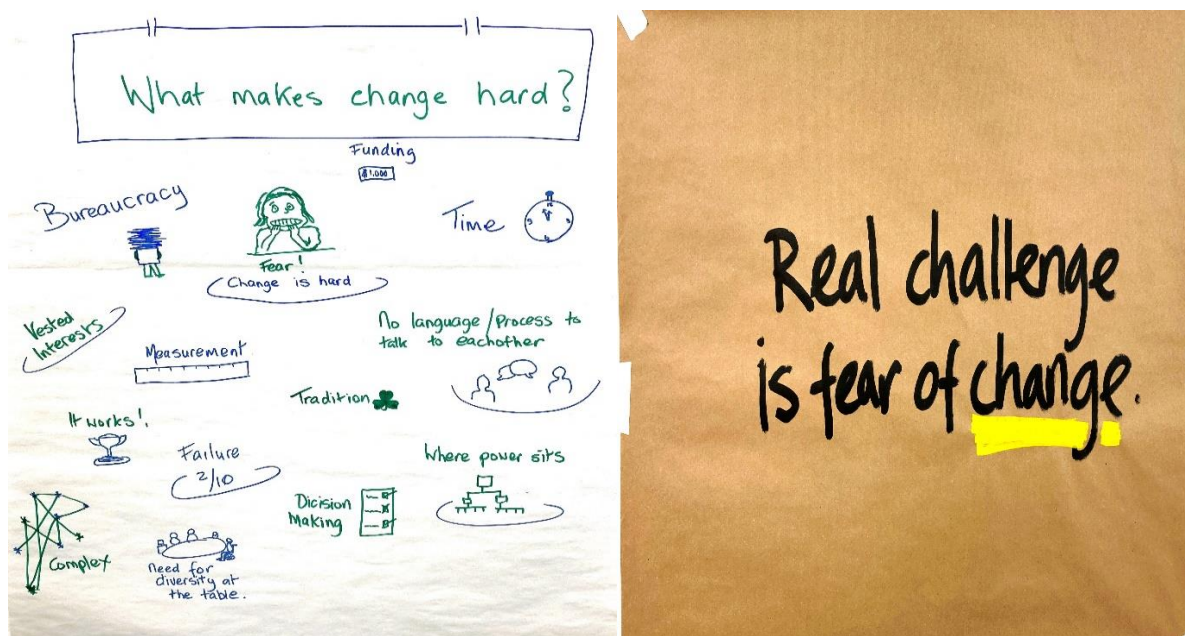 What makes change hard?
Funding
$1,000
Bureaucracy
Time
Fear!
Change is hard
Vested
Interests
No language/Process to
talk to eachother
Measurement
Tradition
It works!
Failure
2/10
Where power sits
Dicision
Making
Complex
need for
diversity at
the table.
Real challenge
is fear of change.